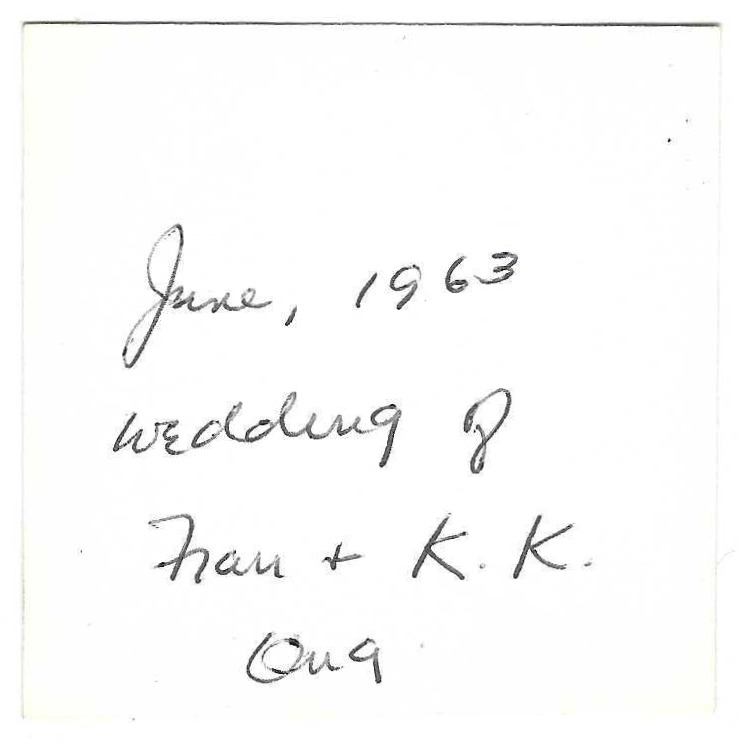 June, 1963
wedding of
Fran + K. K.
Ong